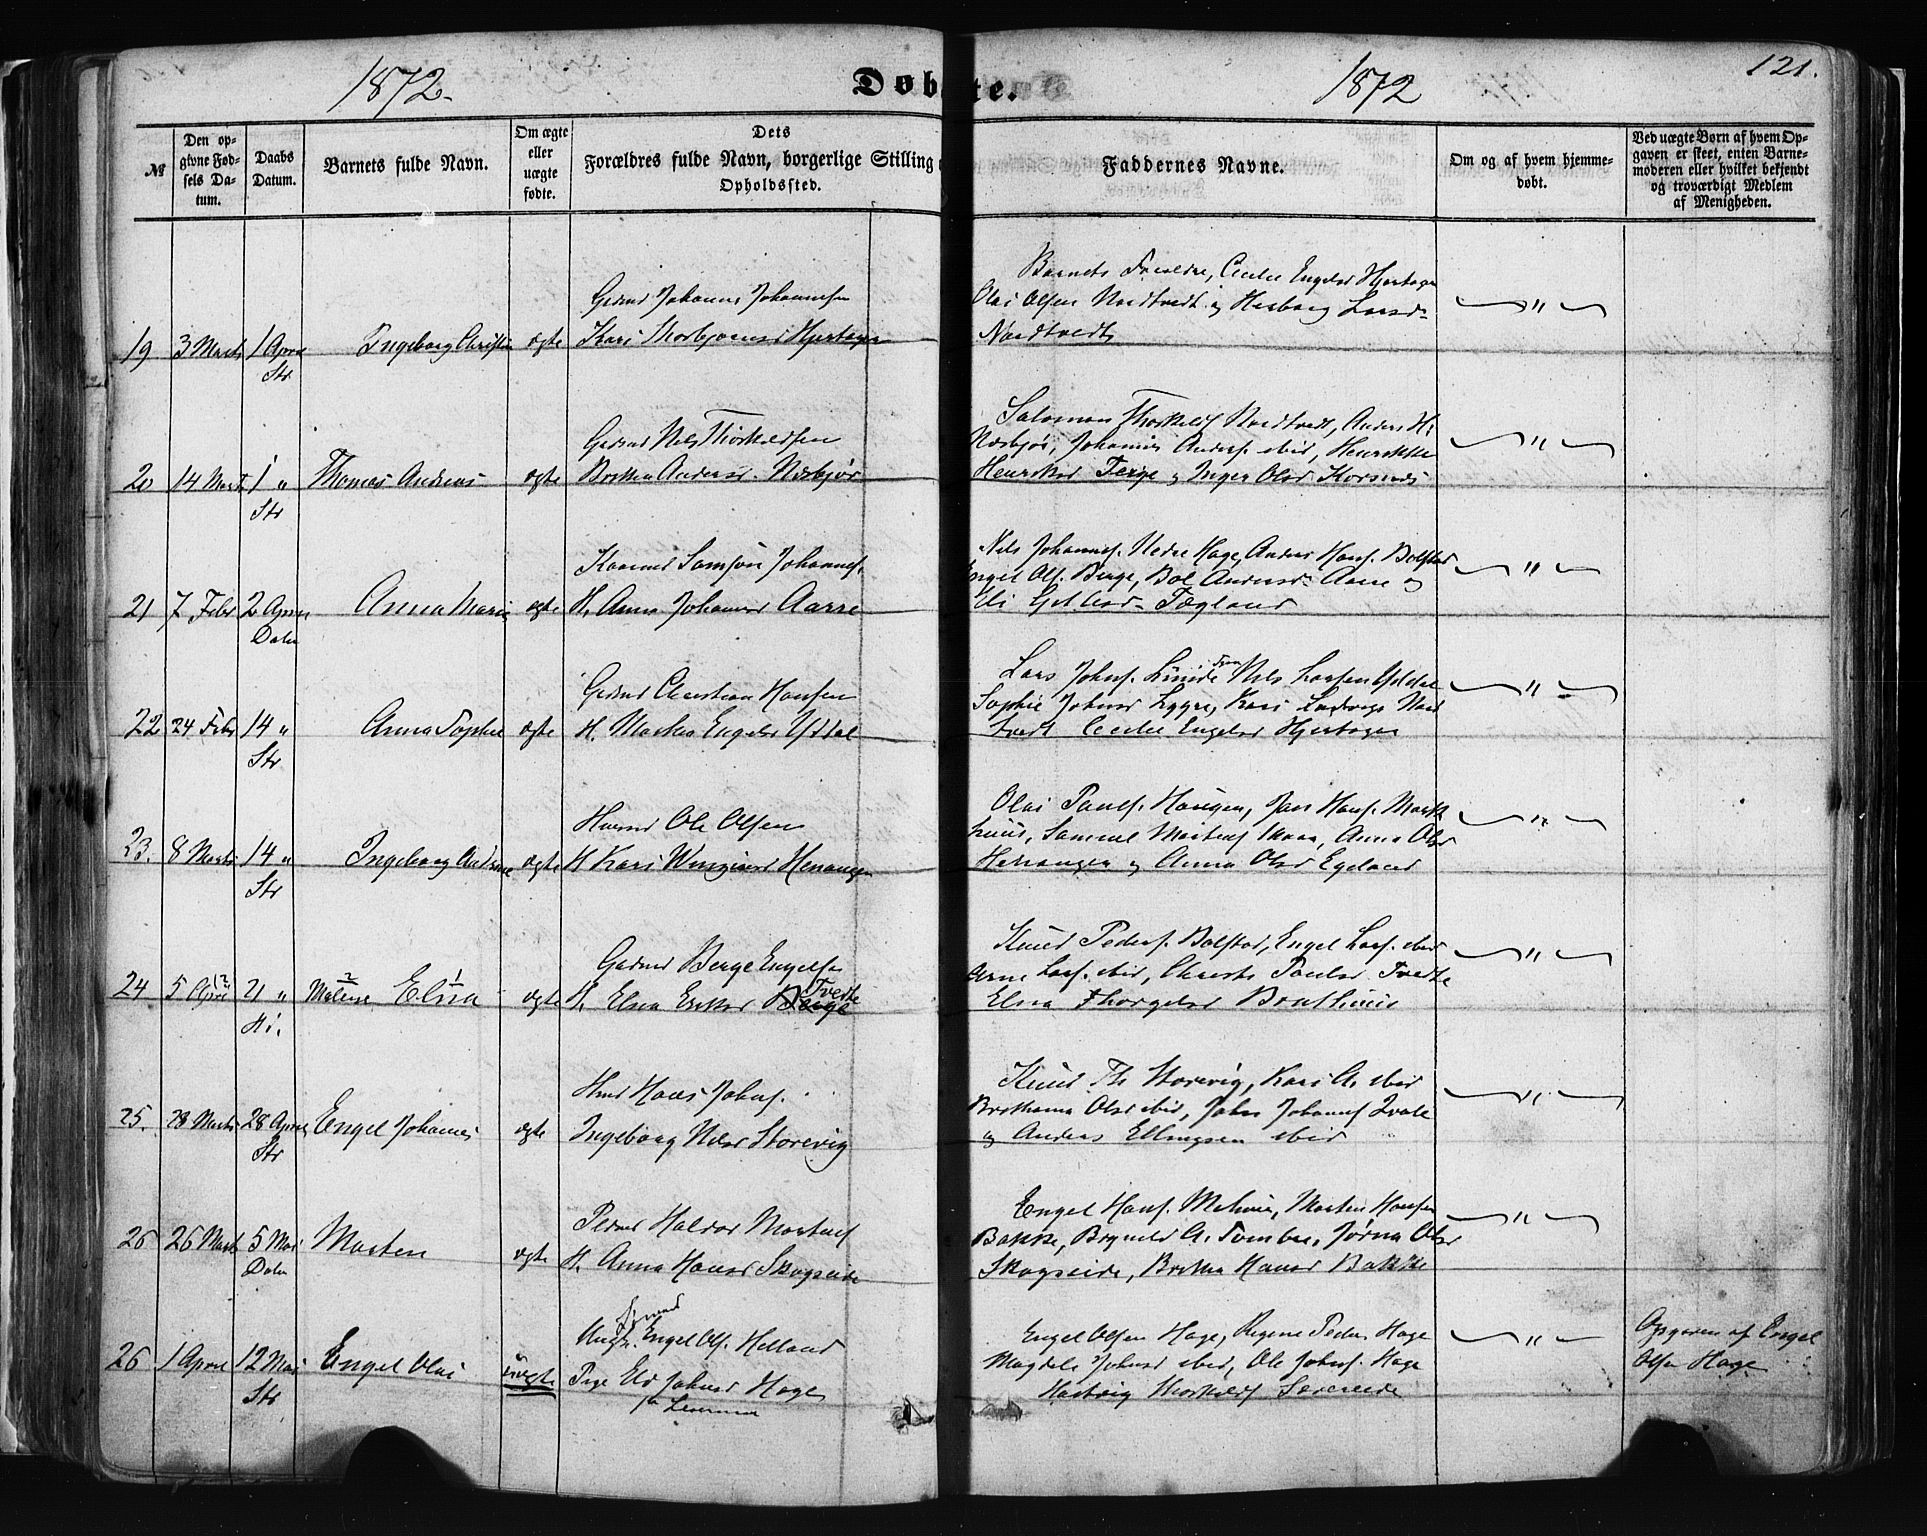 1872.
Døbte.
1872
121.
№
Den opgivne Fødsels Datum.
Daabs Datum.
Barnets fulde Navn.
Om ægte eller uægte fødte.
Dets Forældres fulde Navn, borgerlige Stilling
Opholdssted.
Faddernes Navne.
Om og af hvem hjemmedøbt.
Ved uægte Børn af hvem Opgaven er skeet, enten Barnemoderen eller hvilket bekjendt og troværdigt Medlem af Menigheden.
19 3 Marts 1 April Str Ingeborg Christin ægte
Johannes Johannesen
Kari Thorbjørnsd Hjertager
Barnets Forældre, Cecilie Engelsd Hjertager
Olai Olsen Nordtvedt og Herborg Larsd
Nordtvedt
20 14 Marts 1 " Str Thomas Andreas ægte
Gdmd Nils Thorkildsen
Brithe Andersd. Næsbjør
Salomon Thorkilds Nordtvedt, Anders H.
Næsbjør, Johannes Anders. ibid, Henrikke
Henriksd Terge og Inger Olsd Korsnes
21 7 Febr 2 April Dale Anna Maria ægte
Samson Johannes.
H. Anna Johannesd Aarre
Nils Johannes. Nedre Hage, Anders Hans. Bolstad
Engel Ols. Berge, Bol Andersd. Aarre og
22 24 Febr 14 " Str Anna Sophie ægte
Gdmd Christian Hansen
H. Martha Engelsd Yddal
Lars Johns. Nils Larsen Yddal
Sophie Johnsd Lygre, Kari Nord
tvedt Cecilie Engelsd Hjertager
23. 8 Marts 14 " Str Ingeborg Andrine ægte
Huusmd Ole Olsen
H Kari Henanger
Olai Pauls. Haugen, Jan Hans. Mark
huus, Samuel Mortens Anna Olsd
Henanger og Anna Olsd Egeland
24 5 April 21 " Malene Elna ægte
Gdmd Berge Engelsen
H. Elna Eriksd Tvedte
Knud Peders. Bolstad, Engel Lars. ibid
Arne Lars. ibid, Christi Paulsd Tvedte
Elna Thorgelsd Brathuus
25. 28 Marts 28 April Str Engel Johannes ægte
Hans Johns.
Ingeborg Nilsd Storevig
Knud Th Storevig, Kari A. ibid
Brithanna Olsd ibid, John Johannes
og Anders Ellingsen ibid
26 26 Marts 5 Mai Dale Morten ægte
Haldor Mortens
H. Anna Hansd Skogseide
Engel Hans. Morten Hansen
Bakke, Brynild A. Tombre, Jørna Olsd
Skogseide, Britha Hansd Bakke
26 1 April 12 Mai Str Engel Olai uægte
Ungk. Engel Ols. Helland
Pige Eli Johnsd Hage
Engel Olsen Hage, Regine Peders Hage
Magdele Johnsd ibid, Ole Johns. Hage
Hartvig Thorkilds Sævereide
Opgaven af Engel
Olsen Hage